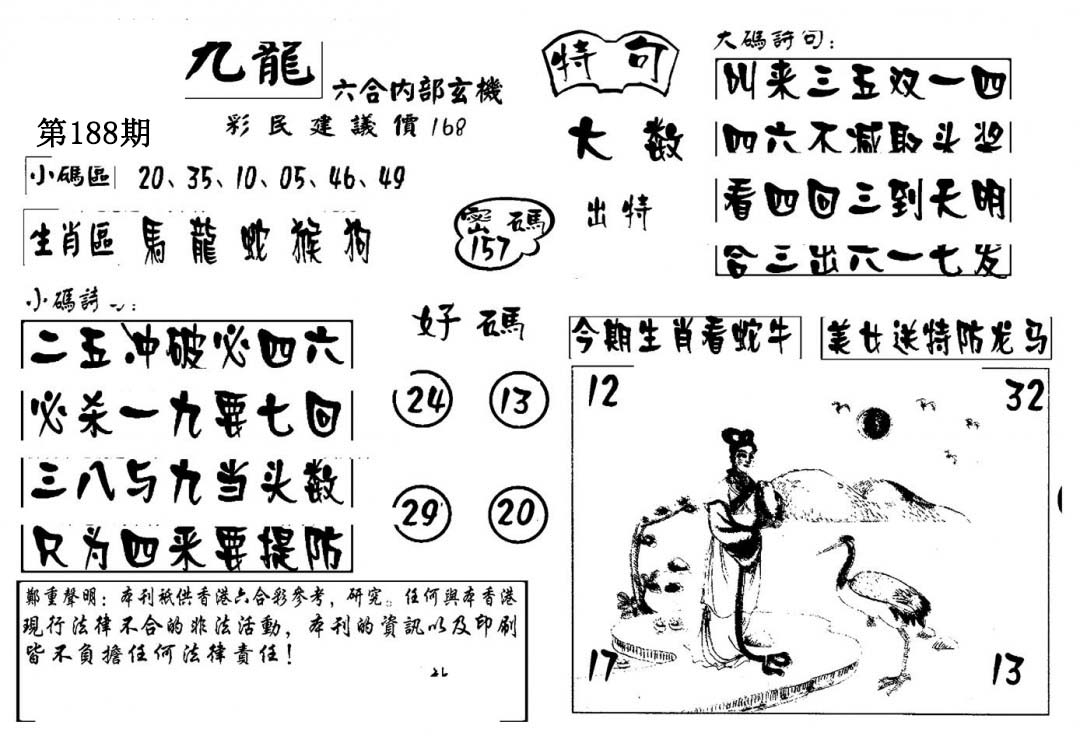 九龍
六合内部玄機
彩民建議價168
第188期
小碼區 20、35、10、05、46、49
生肖區 馬龍蛇猴狗
密碼
157
小碼詩
二五冲破必四六
必杀一九要七回
三八与九当头数
只为四来要提防
好碼
24 13
29 20
鄭重聲明：本刊祇供香港六合彩參考，研究。任何與本香港
現行法律不合的非法活動，本刊的資訊以及印刷
皆不負擔任何法律責任！
特句
大数
出特
大碼詩句：
叫来三五双一四
四六不减取头奖
看四回三到天明
合三出六一七发
今期生肖看蛇牛
美女送特防龙马
12 32
17 13